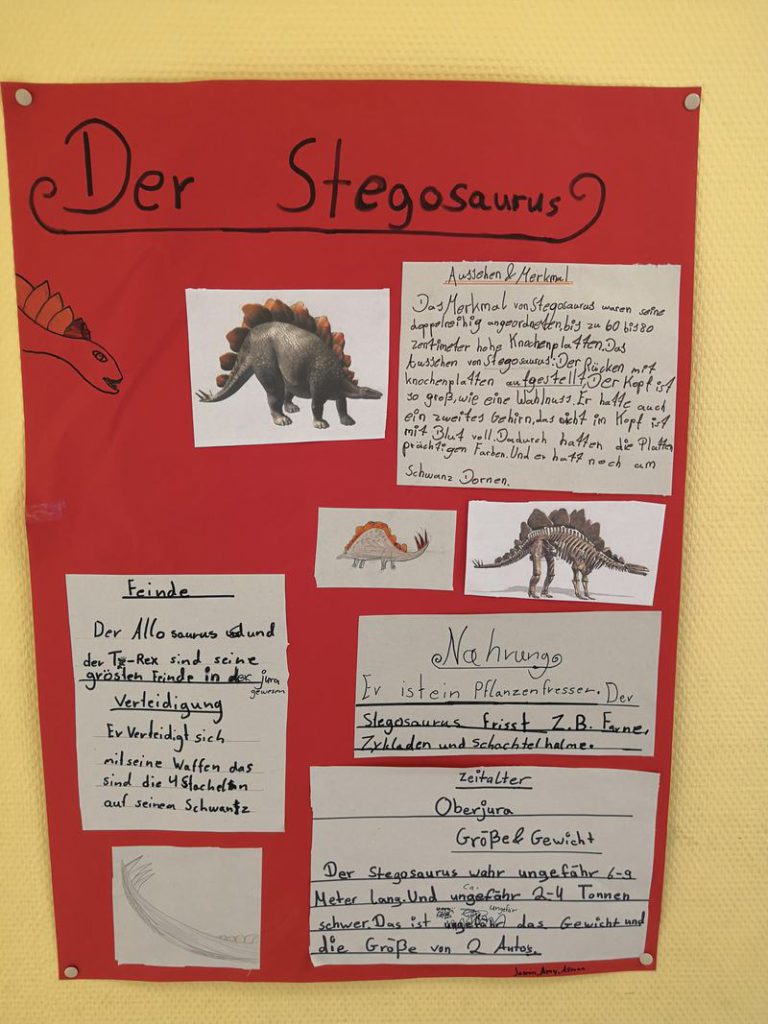 Der Stegosaurus
Aussehen & Merkmal
Das Merkmal von Stegosaurus waren seine
doppelreihig angeordneten, bis zu 60 bis 80
zentimeter hohe Knochenplatten. Das
Aussehen von Stegosaurus: Der Rücken mit
knochenplatten aufgestellt, Der Kopf ist
so groß, wie eine Wahlnuss. Er hatte auch
ein zweites Gehirn, das nicht im Kopf ist
mit Blut voll. Dadurch hatten die Platten
prächtigen Farben. Und er hatt noch am
Schwanz Dornen.
Feinde
Der Allosaurus und
der T-Rex sind seine
grösten Feinde in der jura
gewesen
Verteidigung
Er Verteidigt sich
mit seine Waffen das
sind die 4 Stacheln
auf seinem Schwantz
Nahrung
Er ist ein Pflanzenfresser. Der
Stegosaurus frisst Z.B. Farne,
Zykladen und Schachtelhalme.
Zeitalter
Oberjura
Größe & Gewicht
Der Stegosaurus wahr ungefähr 6-9
Meter Lang. Und ca. 2-4 Tonnen
schwer. Das ist ungefär das Gewicht und
die Größe von 2 Autos.